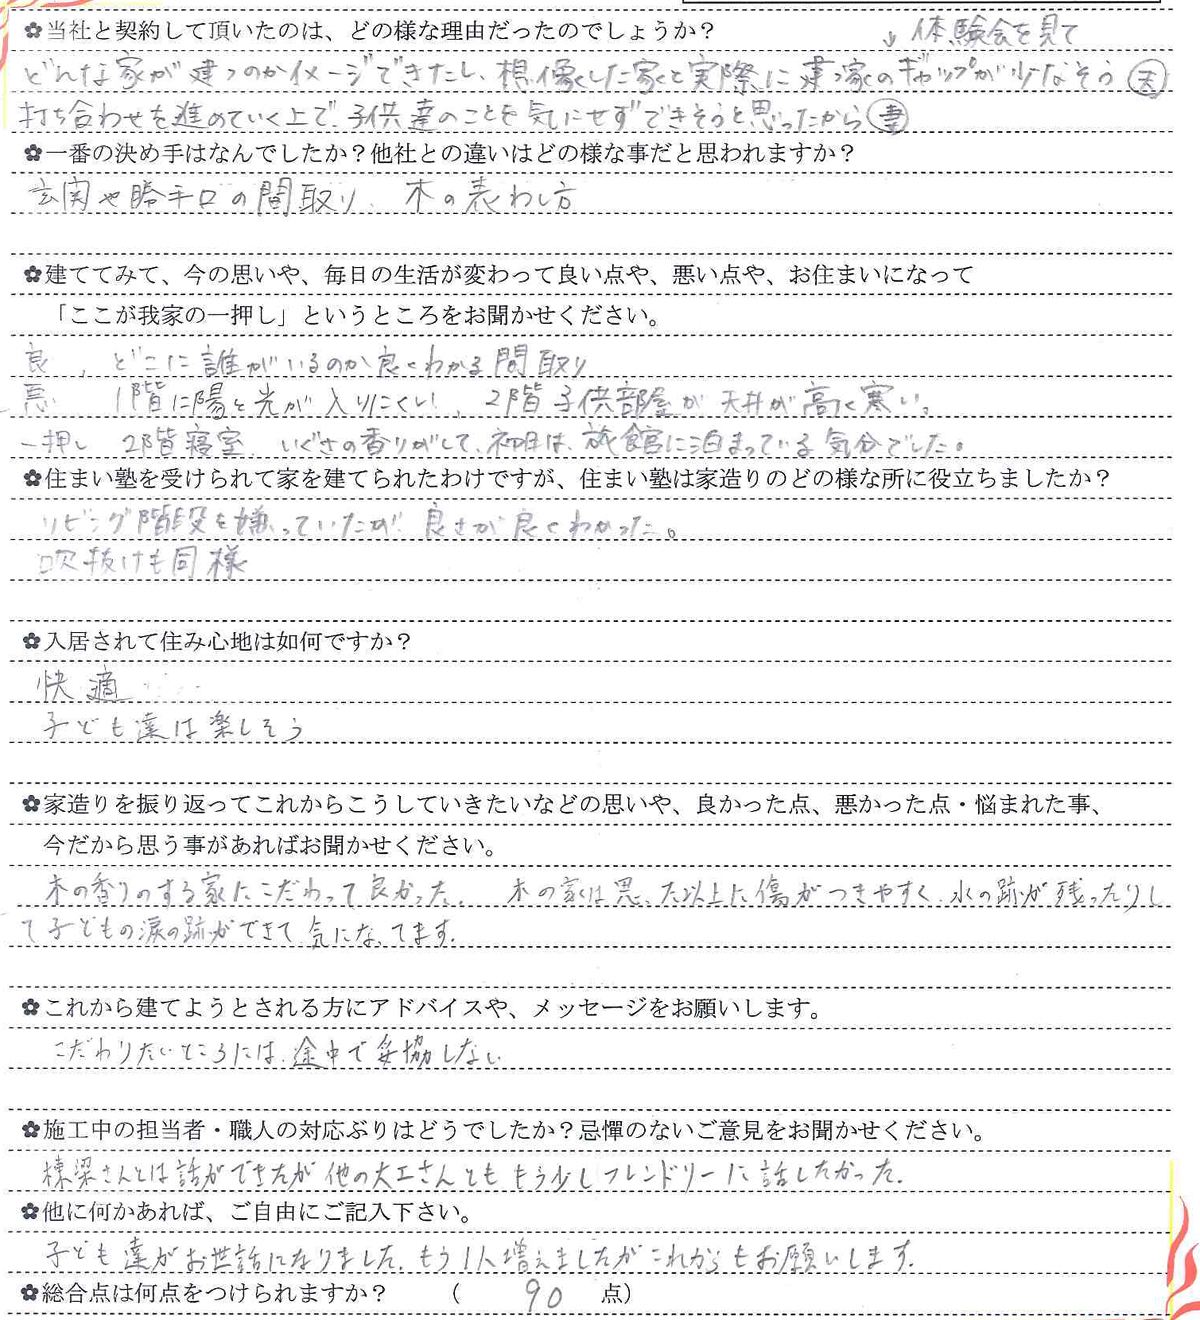 ✿当社と契約して頂いたのは、どの様な理由だったのでしょうか？ ↓体験会を見て
どんな家が建つのかイメージできたし、想像した家と実際に建つ家のギャップが少なそう 夫
打ち合わせを進めていく上で、子供達のことを気にせずできそうと思ったから 妻
✿一番の決め手はなんでしたか？他社との違いはどの様な事だと思われますか？
玄関や勝手口の間取り、木の表わし方
✿建ててみて、今の思いや、毎日の生活が変わって良い点や、悪い点や、お住まいになって
「ここが我家の一押し」というところをお聞かせください。
良、どこに誰がいるのか良くわかる間取り
悪 1階に陽と光が入りにくい、2階子供部屋が天井が高く寒い。
一押し 2階寝室、いぐさの香りがして、初日は、旅館に泊まっている気分でした。
✿住まい塾を受けられて家を建てられたわけですが、住まい塾は家造りのどの様な所に役立ちましたか？
リビング階段を嫌っていたが、良さが良くわかった。
吹抜けも同様
✿入居されて住み心地は如何ですか？
快適
子ども達は楽しそう
✿家造りを振り返ってこれからこうしていきたいなどの思いや、良かった点、悪かった点・悩まれた事、
今だから思う事があればお聞かせください。
木の香りのする家にこだわって良かった。 木の家は思った以上に傷がつきやすく、水の跡が残ったりし
て子どもの涙の跡ができて、気になってます。
✿これから建てようとされる方にアドバイスや、メッセージをお願いします。
こだわりたいところには、途中で妥協しない
✿施工中の担当者・職人の対応ぶりはどうでしたか？忌憚のないご意見をお聞かせください。
棟梁さんとは話ができたが他の大工さんとももう少しフレンドリーに話したかった。
✿他に何かあれば、ご自由にご記入下さい。
子ども達がお世話になりました。もう1人増えましたがこれからもお願いします。
✿総合点は何点をつけられますか？ （ 90 点）